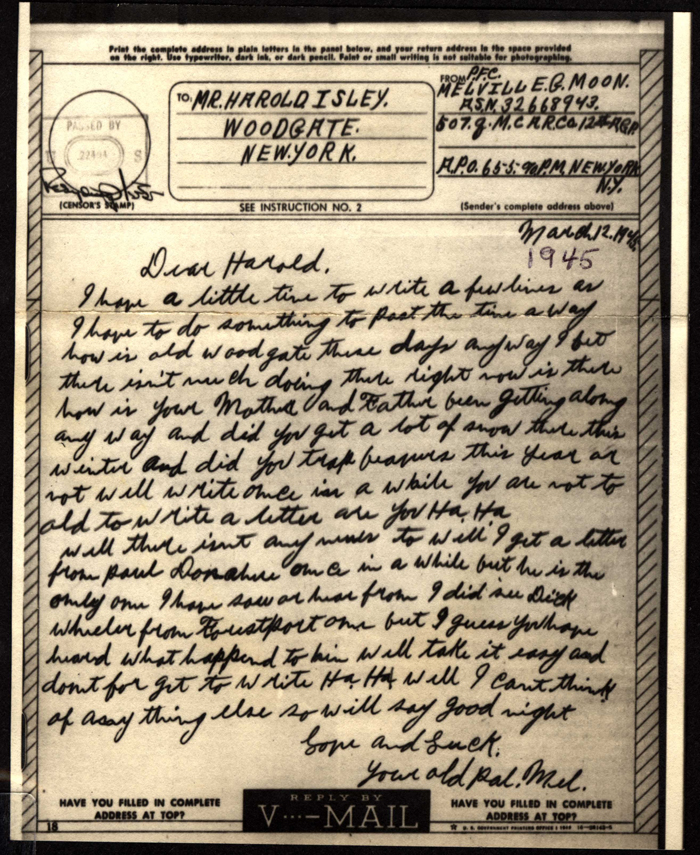 Print the complete address in plain letters in the panel below, and your return address in the space provided
on the right. Use typewriter, dark ink, or dark pencil. Faint or small writing is not suitable for photographing.
PASSED BY
U S
(CENSOR'S STAMP)
TO:
MR. HAROLD ISLEY.
WOODGATE.
NEW.YORK.
SEE INSTRUCTION NO. 2
FROM
PFC.
MELVILLE E.G. MOON.
A.S.N. 32668943.
507. Q.M.C A.R.CO. 12
A.P.O. 655. P.M. NEW YORK
N.Y.
(Sender's complete address above)
March.12.
1945
Dear Harold.
I have a little time to write a few lines as
I have to do something to past the time a way
how is old wood gate these days any way I bet
there isn't much doing there right now is there
how is your Mother and Father been getting along
any way and did you get a lot of snow there this
winter and did you trap beavers this year or
not will write once in a while you are not to
old to write a letter are you Ha. Ha
will there isnt any news to will I get a letter
from Paul Donahue once in a while but he is the
only one I have saw or hear from I did see Dick
Wheeler from Forestport one but I guess you have
heard what happend to him will take it easy and
don't for get to write Ha. Ha. will I can't think
of assy thing else so will say good night
Love and Luck.
Your old pal. Mel.
HAVE YOU FILLED IN COMPLETE
ADDRESS AT TOP?
REPLY BY
V···—MAIL
HAVE YOU FILLED IN COMPLETE
ADDRESS AT TOP?
18